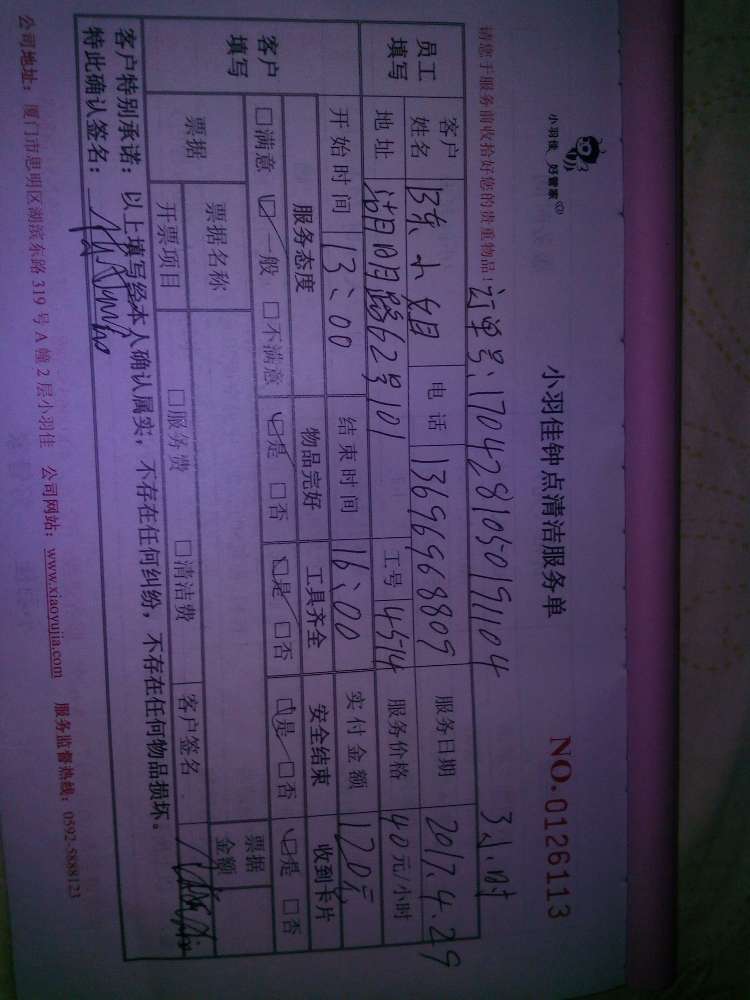 小羽佳 好管家
小羽佳钟点清洁服务单
NO.0126113
请您于服务前收拾好您的贵重物品!
订单号:1704281050191104
3小时
员工填写
客户姓名 陈小姐 电话 13696968809 服务日期 2017.4.29
地址 湖明路62号101 工号 4514 服务价格 40元/小时
开始时间 13:00 结束时间 16:00 实付金额 120元
客户填写
服务态度 物品完好 工具齐全 安全结束 收到卡片
□满意 ☑一般 □不满意 ☑是 □否 ☑是 □否 ☑是 □否 ☑是 □否
票据 票据名称 票据金额
开票项目 □服务费 □清洁费 客户签名
客户特别承诺:以上填写经本人确认属实,不存在任何纠纷,不存在任何物品损坏。
特此确认签名:
公司地址:厦门市思明区湖滨东路319号A幢2层小羽佳 公司网站:www.xiaoyujia.com 服务监督热线:0592-5888123